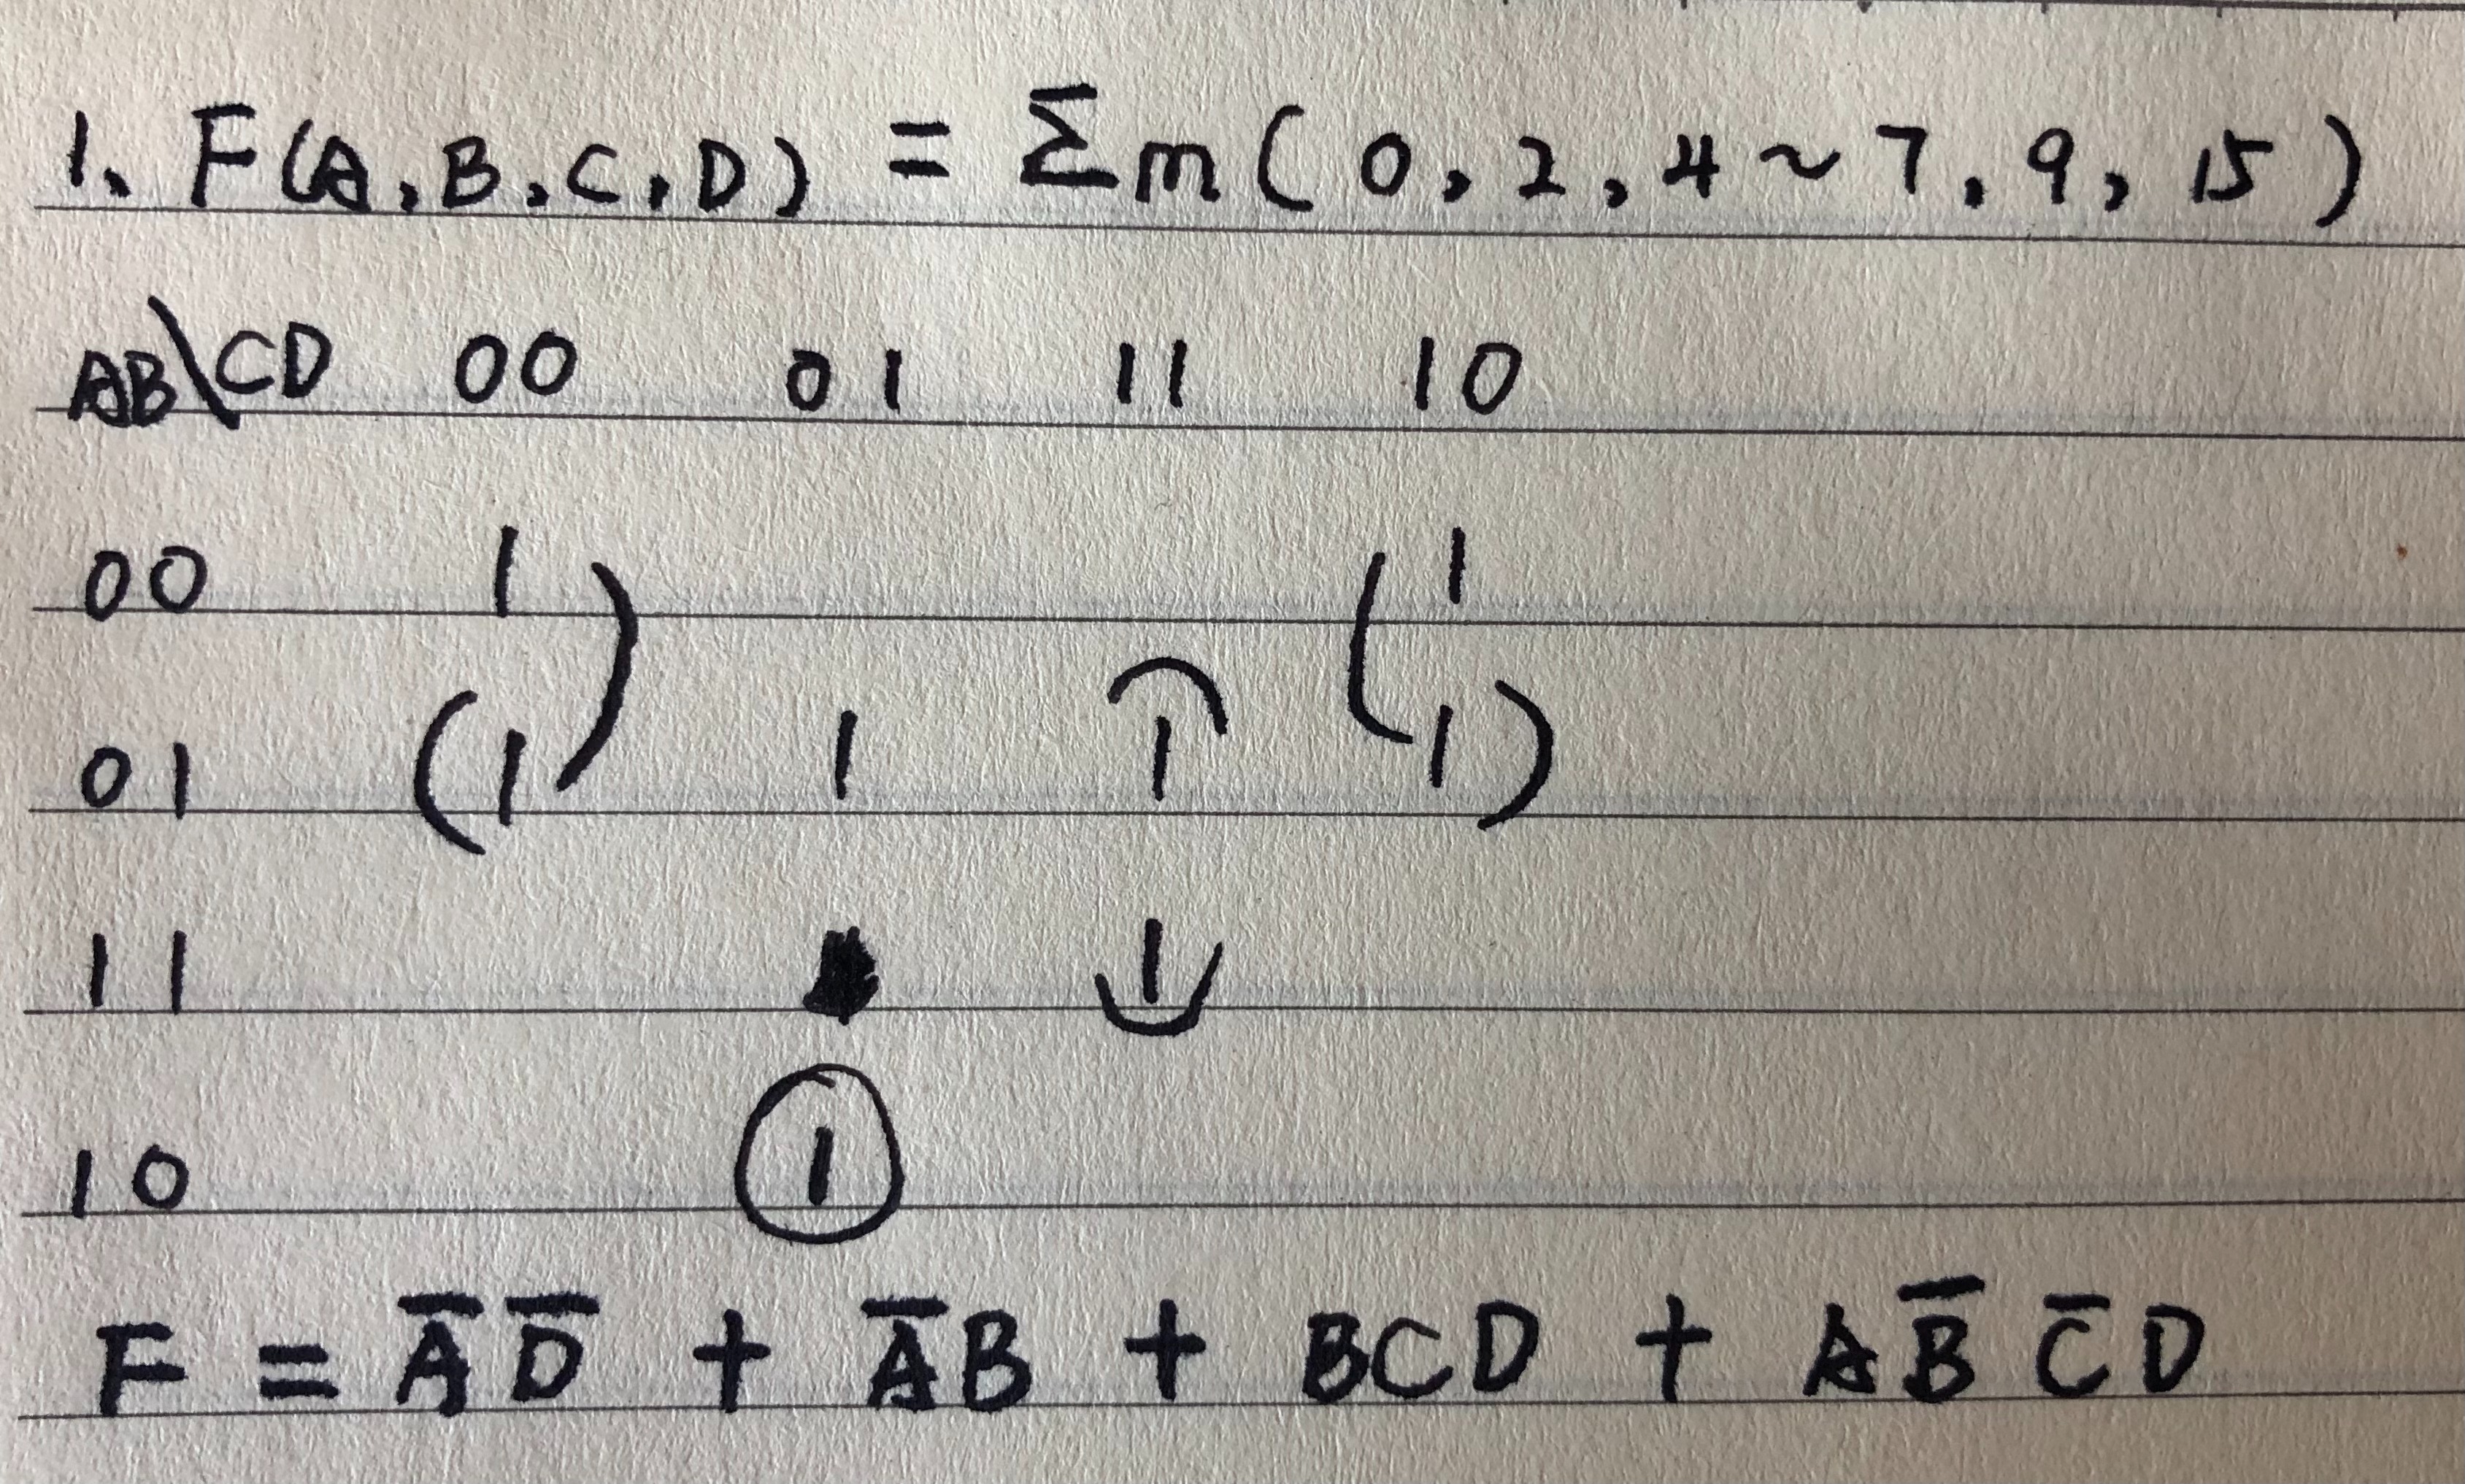 1、F(A,B,C,D) = Σm(0,2,4~7,9,15)
AB\CD 00 01 11 10
00 1 1
01 1 1 1 1
11 1
10 1
F = A̅D̅ + A̅B + BCD + AB̅C̅D